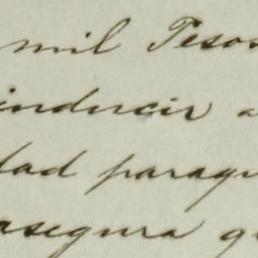 mil Pesos
inducir a
dad paragu
asegura q